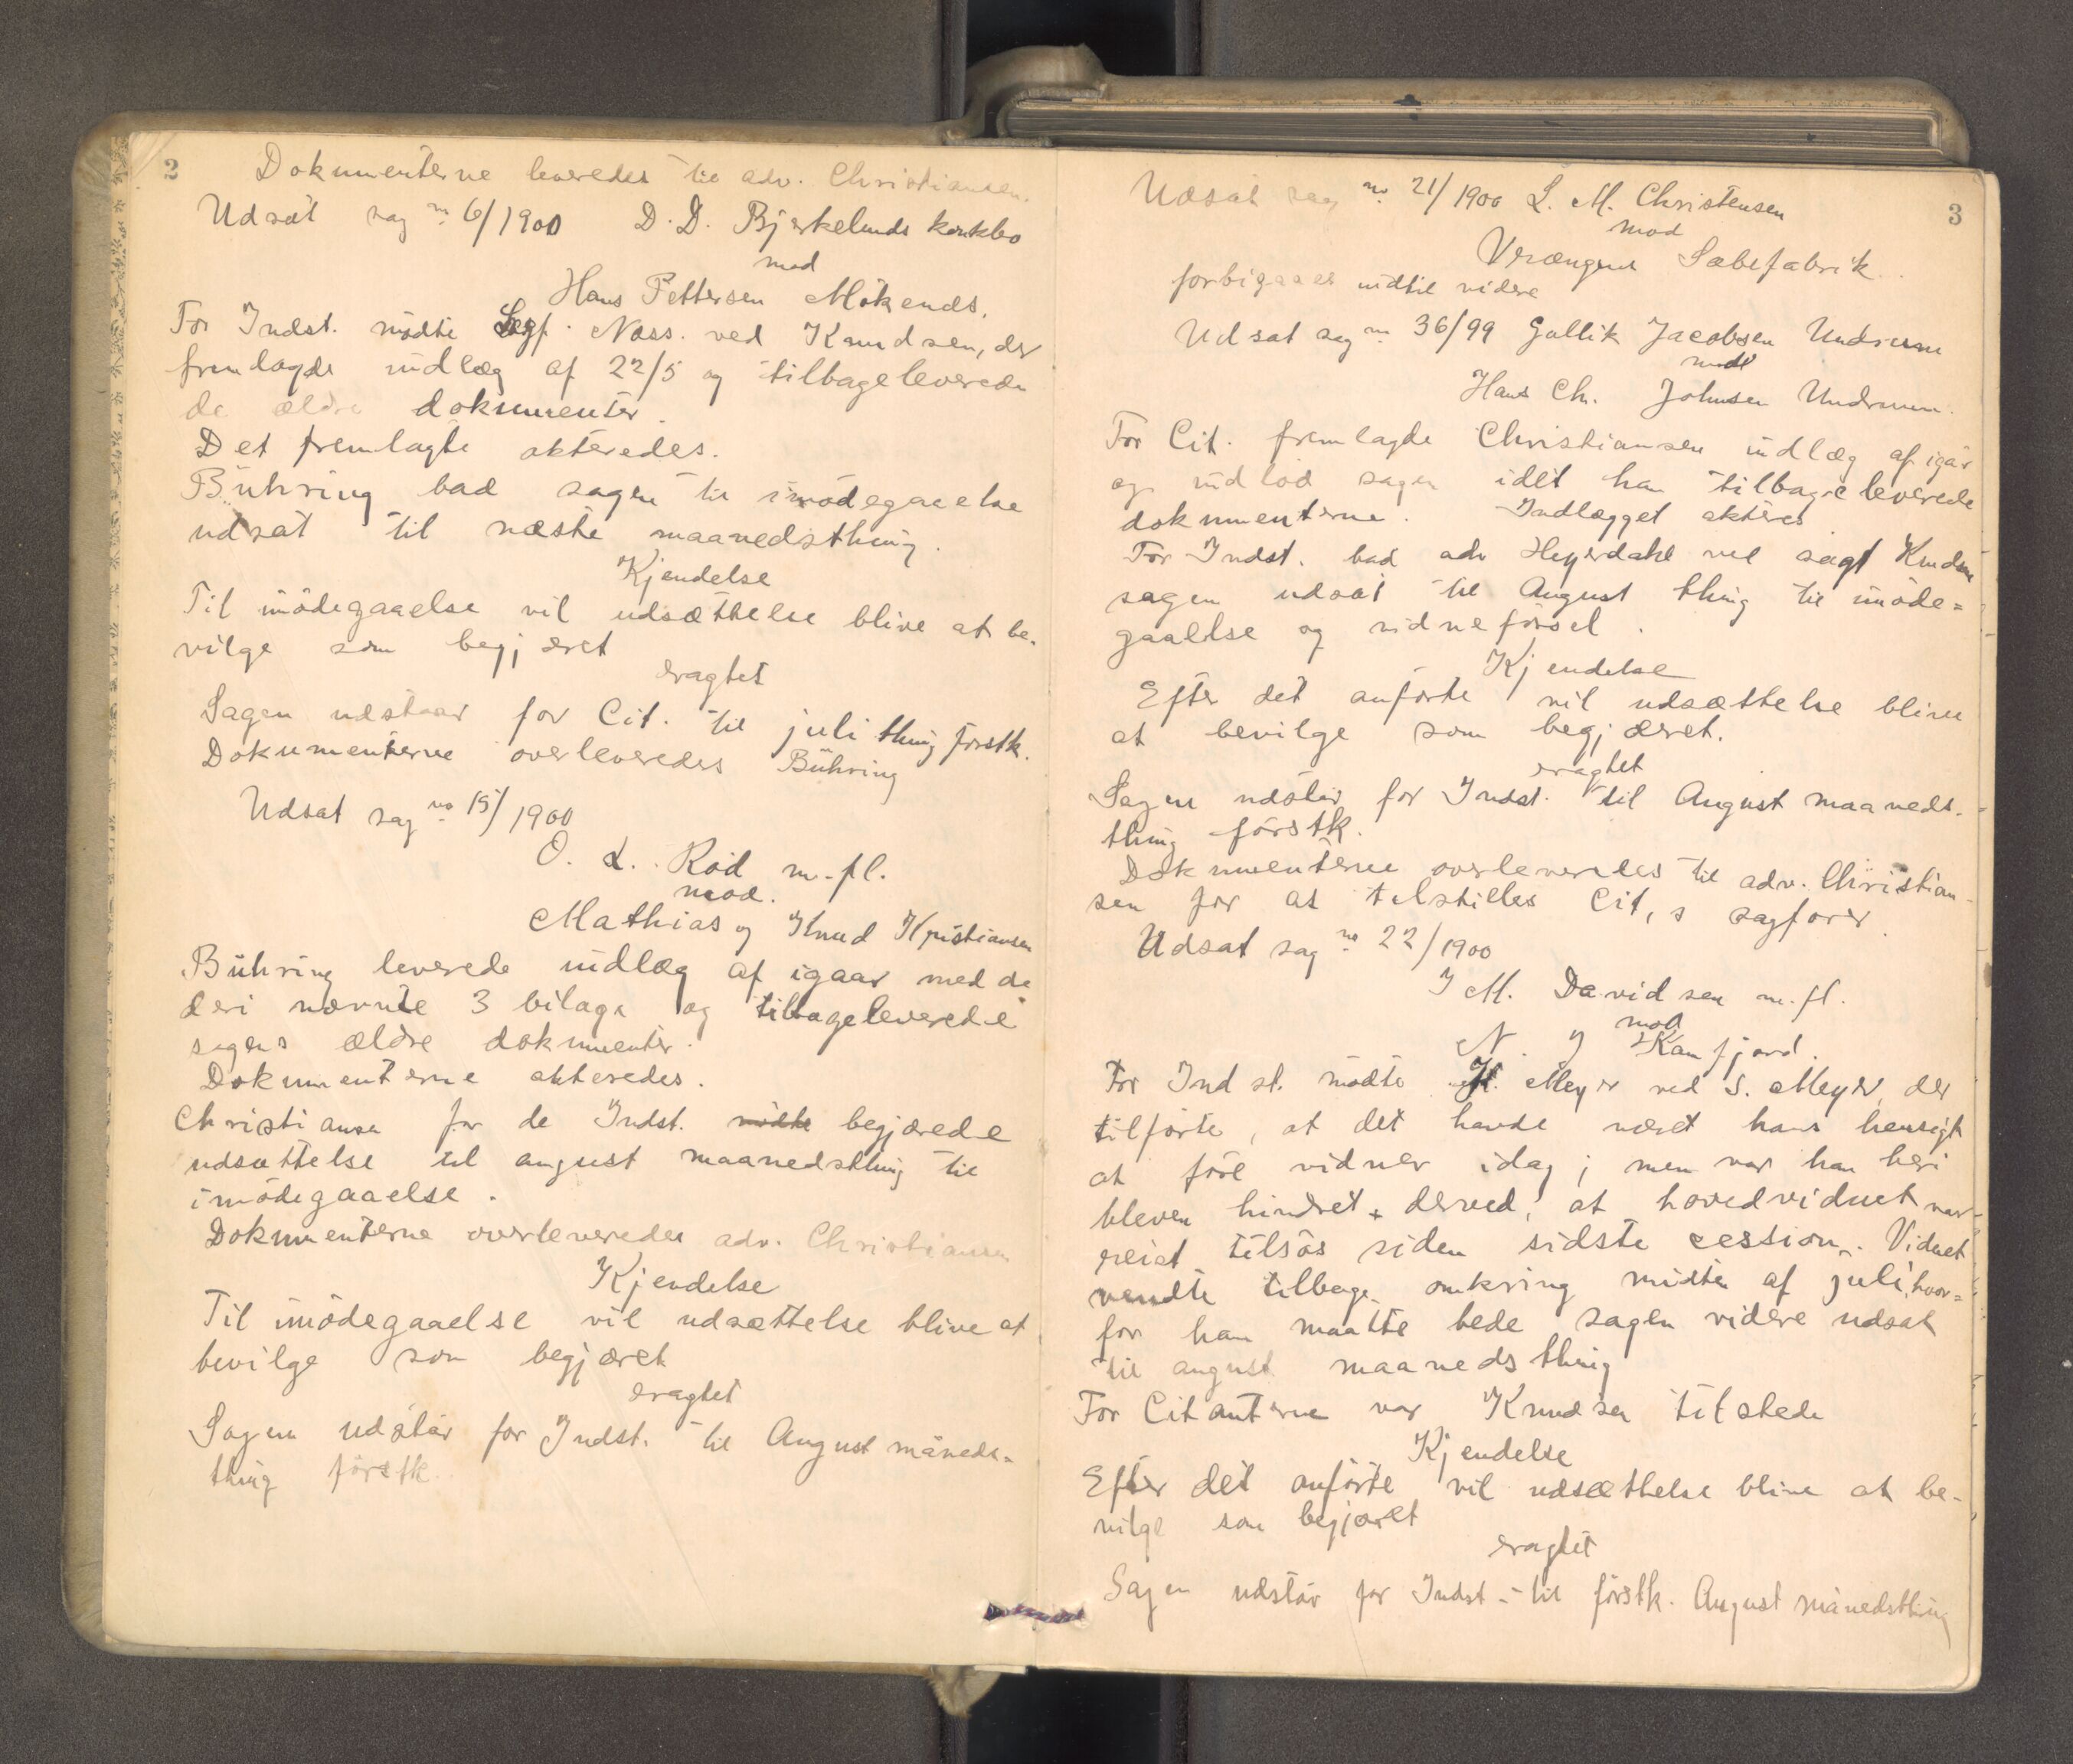 2
Dokumenterne leveredes til adv. Christiansen.
Udsat sag no 6/1900 D. D. Bjerkelunds konkbo
mod
Hans Pettersen Mökends.
For Indst. mödte Sagf. Næss. ved Knudsen, der
fremlagde indlæg af 22/5 og tilbageleverede
de ældre dokumenter.
Det fremlagte akteredes.
Bühring bad sagen til imödegaaelse
udsat til næste maanedsthing.
Kjendelse
Til imödegaaelse vil udsættelse blive at be-
vilge som begjæret
eragtet
Sagen udstaar for Cit. til juli thing förstk.
Dokumenterne overleveredes Bühring
Udsat sag no 15/1900
O. L. Röd m.fl.
mod.
Mathias og Knud Kristiansen
Bühring leverede indlæg af igaar med de
deri nævnte 3 bilage og tilbageleverede
sagens ældre dokumenter.
Dokumenterne akteredes.
Christiansen for de Indst. mödte begjærede
udsættelse til august maanedsthing til
imödegaaelse.
Dokumenterne overleveredes adv. Christiansen
Kjendelse
Til imödegaaelse vil udsættelse blive at
bevilge som begjæret
eragtet
Sagen udstår for Indst. til August måneds-
thing förstk.
3
Udsat sag no 21/1900 L. M. Christensen
mod
Sæbefabrik.
forbigaaes indtil videre
Udsat sag no 36/99 Gallik Jacobsen
mod
Hans Ch. Johnsen
For Cit. fremlagde Christiansen indlæg af igår
og indlod sagen idet han tilbageleverede
dokumenterne. Indlægget akteres
For Indst. bad adv Heyerdahl ved sagf Knudsen
sagen udsat til August thing til imöde=
gaaelse og vidneförsel.
Kjendelse
Efter det anförte vil udsættelse blive
at bevilge som begjæret.
eragtet
Sagen udstår for Indst. til August maaneds-
thing förstk.
Dokumenterne overleveredes til adv. Christian-
sen for at tilstilles Cit,s sagförer.
Udsat sag no 22/1900
I M. Davidsen m.fl.
mod
N. J Kanfjord.
For Indst. mödte H. Meyer ved S. Meyer, der
tilförte, at det havde været hans hensigt
at före vidner idag; men var han heri
bleven hindret derved, at hovedvidnet var
reist tilsös siden sidste session. Vidnet
vendte tilbage omkring midten af juli, hvor=
for han maatte bede sagen videre udsat
til august maanedsthing
For Citanterne var Knudsen tilstede
Kjendelse
Efter det anförte vil udsættelse blive at be-
vilge som begjæret
eragtet
Sagen udstår for Indst. til förstk. August månedsthing